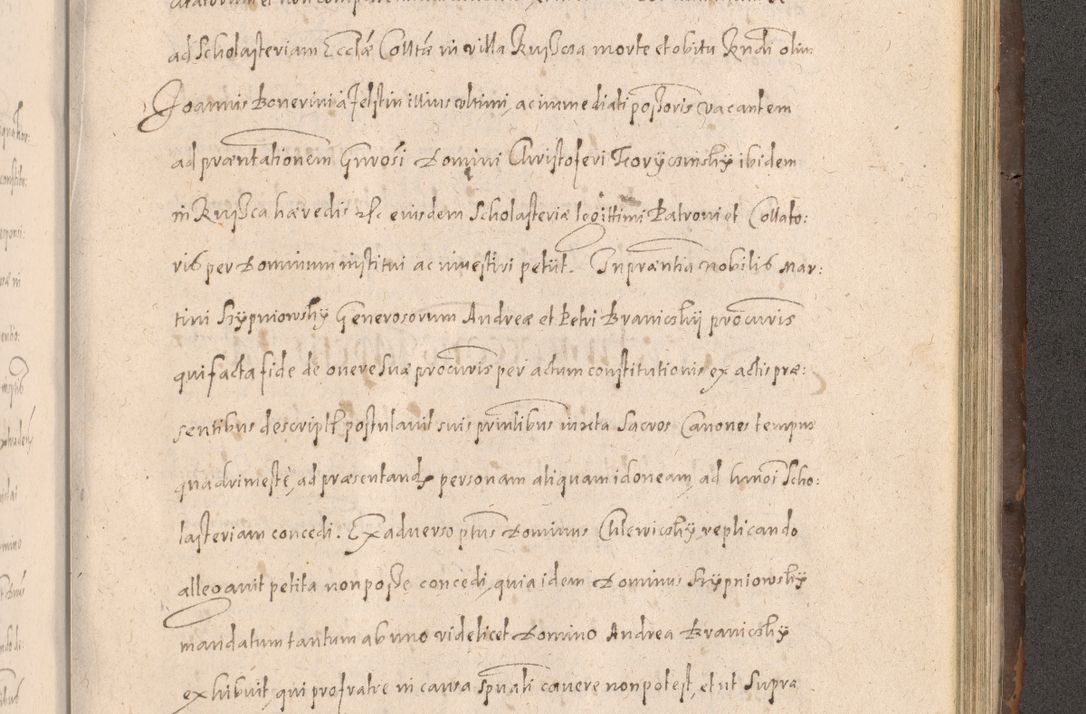 ad Scholasteriam Ecclæ Colltæ in villa Ruszcza morte et obitu Rndi olim
Joannis Bonerini à Jelstin illius ultimi, ac immediati possoris vacantem
ad præntationem Gnrosi Domini Christoferi ibidem
in Ruszca hæredis etc eiusdem Scholasteriæ legittimi Patroni et Collato:
ris per Dominum institui ac inuestiri petiit. In præntia nobilis Mar:
tini Krypniowsky Generosorum Andreæ et Petri Branicskij procuris
qui facta fide de onere suæ procuris per actum constitutionis ex actis præ:
sentibus descript postulauit suis prinlibus iuxta Sacros Canones tempus
quadrimestè, ad præsentandx personam aliquam idoneam, ad huiusmoi Scho:
lasteriam concedi. Ex aduerso ptus Dominus Chlewicsky replicando
allegauit petita non posse concedi, quia idem Dominus Krypniowsky
mandatum tantum ab uno videlicet Domino Andrea Branicsky
exhibuit, qui pro fratre in causa spuali cauere non potest, et ut supra